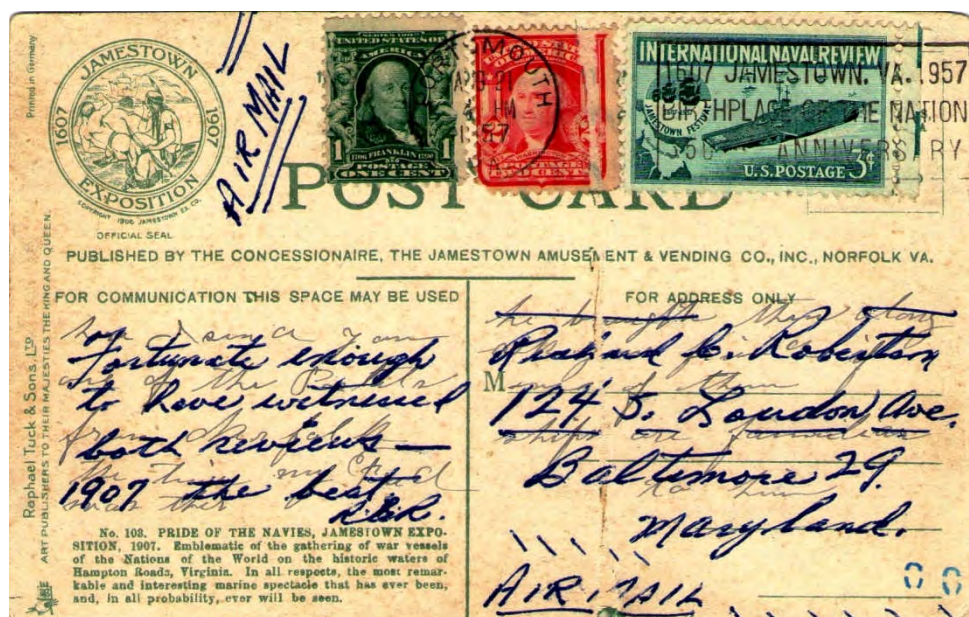 Printed in Germany
JAMESTOWN
1607 1907
EXPOSITION
COPYRIGHT 1906 JAMESTOWN EX. CO.
OFFICIAL SEAL
AIR MAIL
UNITED STATES OF
AMERICA
1 1706 FRANKLIN 1790 1
POSTAGE
ONE CENT
PORTSMOUTH
21
1957
INTERNATIONAL NAVAL REVIEW
JAMESTOWN FESTIVAL
U.S. POSTAGE 3¢
1607 JAMESTOWN, VA. 1957
BIRTHPLACE OF THE NATION
350 ANNIVERSARY
POST CARD
PUBLISHED BY THE CONCESSIONAIRE, THE JAMESTOWN AMUSEMENT & VENDING CO., INC., NORFOLK VA.
Raphael Tuck & Sons, LTD
ART PUBLISHERS TO THEIR MAJESTIES THE KING AND QUEEN.
FOR COMMUNICATION THIS SPACE MAY BE USED
Fortunate enough
to have witnessed
both reviews —
1907 the best.
No. 103. PRIDE OF THE NAVIES, JAMESTOWN EXPO-
SITION, 1907. Emblematic of the gathering of war vessels
of the Nations of the World on the historic waters of
Hampton Roads, Virginia. In all respects, the most remar-
kable and interesting marine spectacle that has ever been,
and, in all probability, ever will be seen.
FOR ADDRESS ONLY
he bought this along
M
C. Robertson
124 S. Loudon Ave.
Baltimore 29.
Maryland.
AIR MAIL